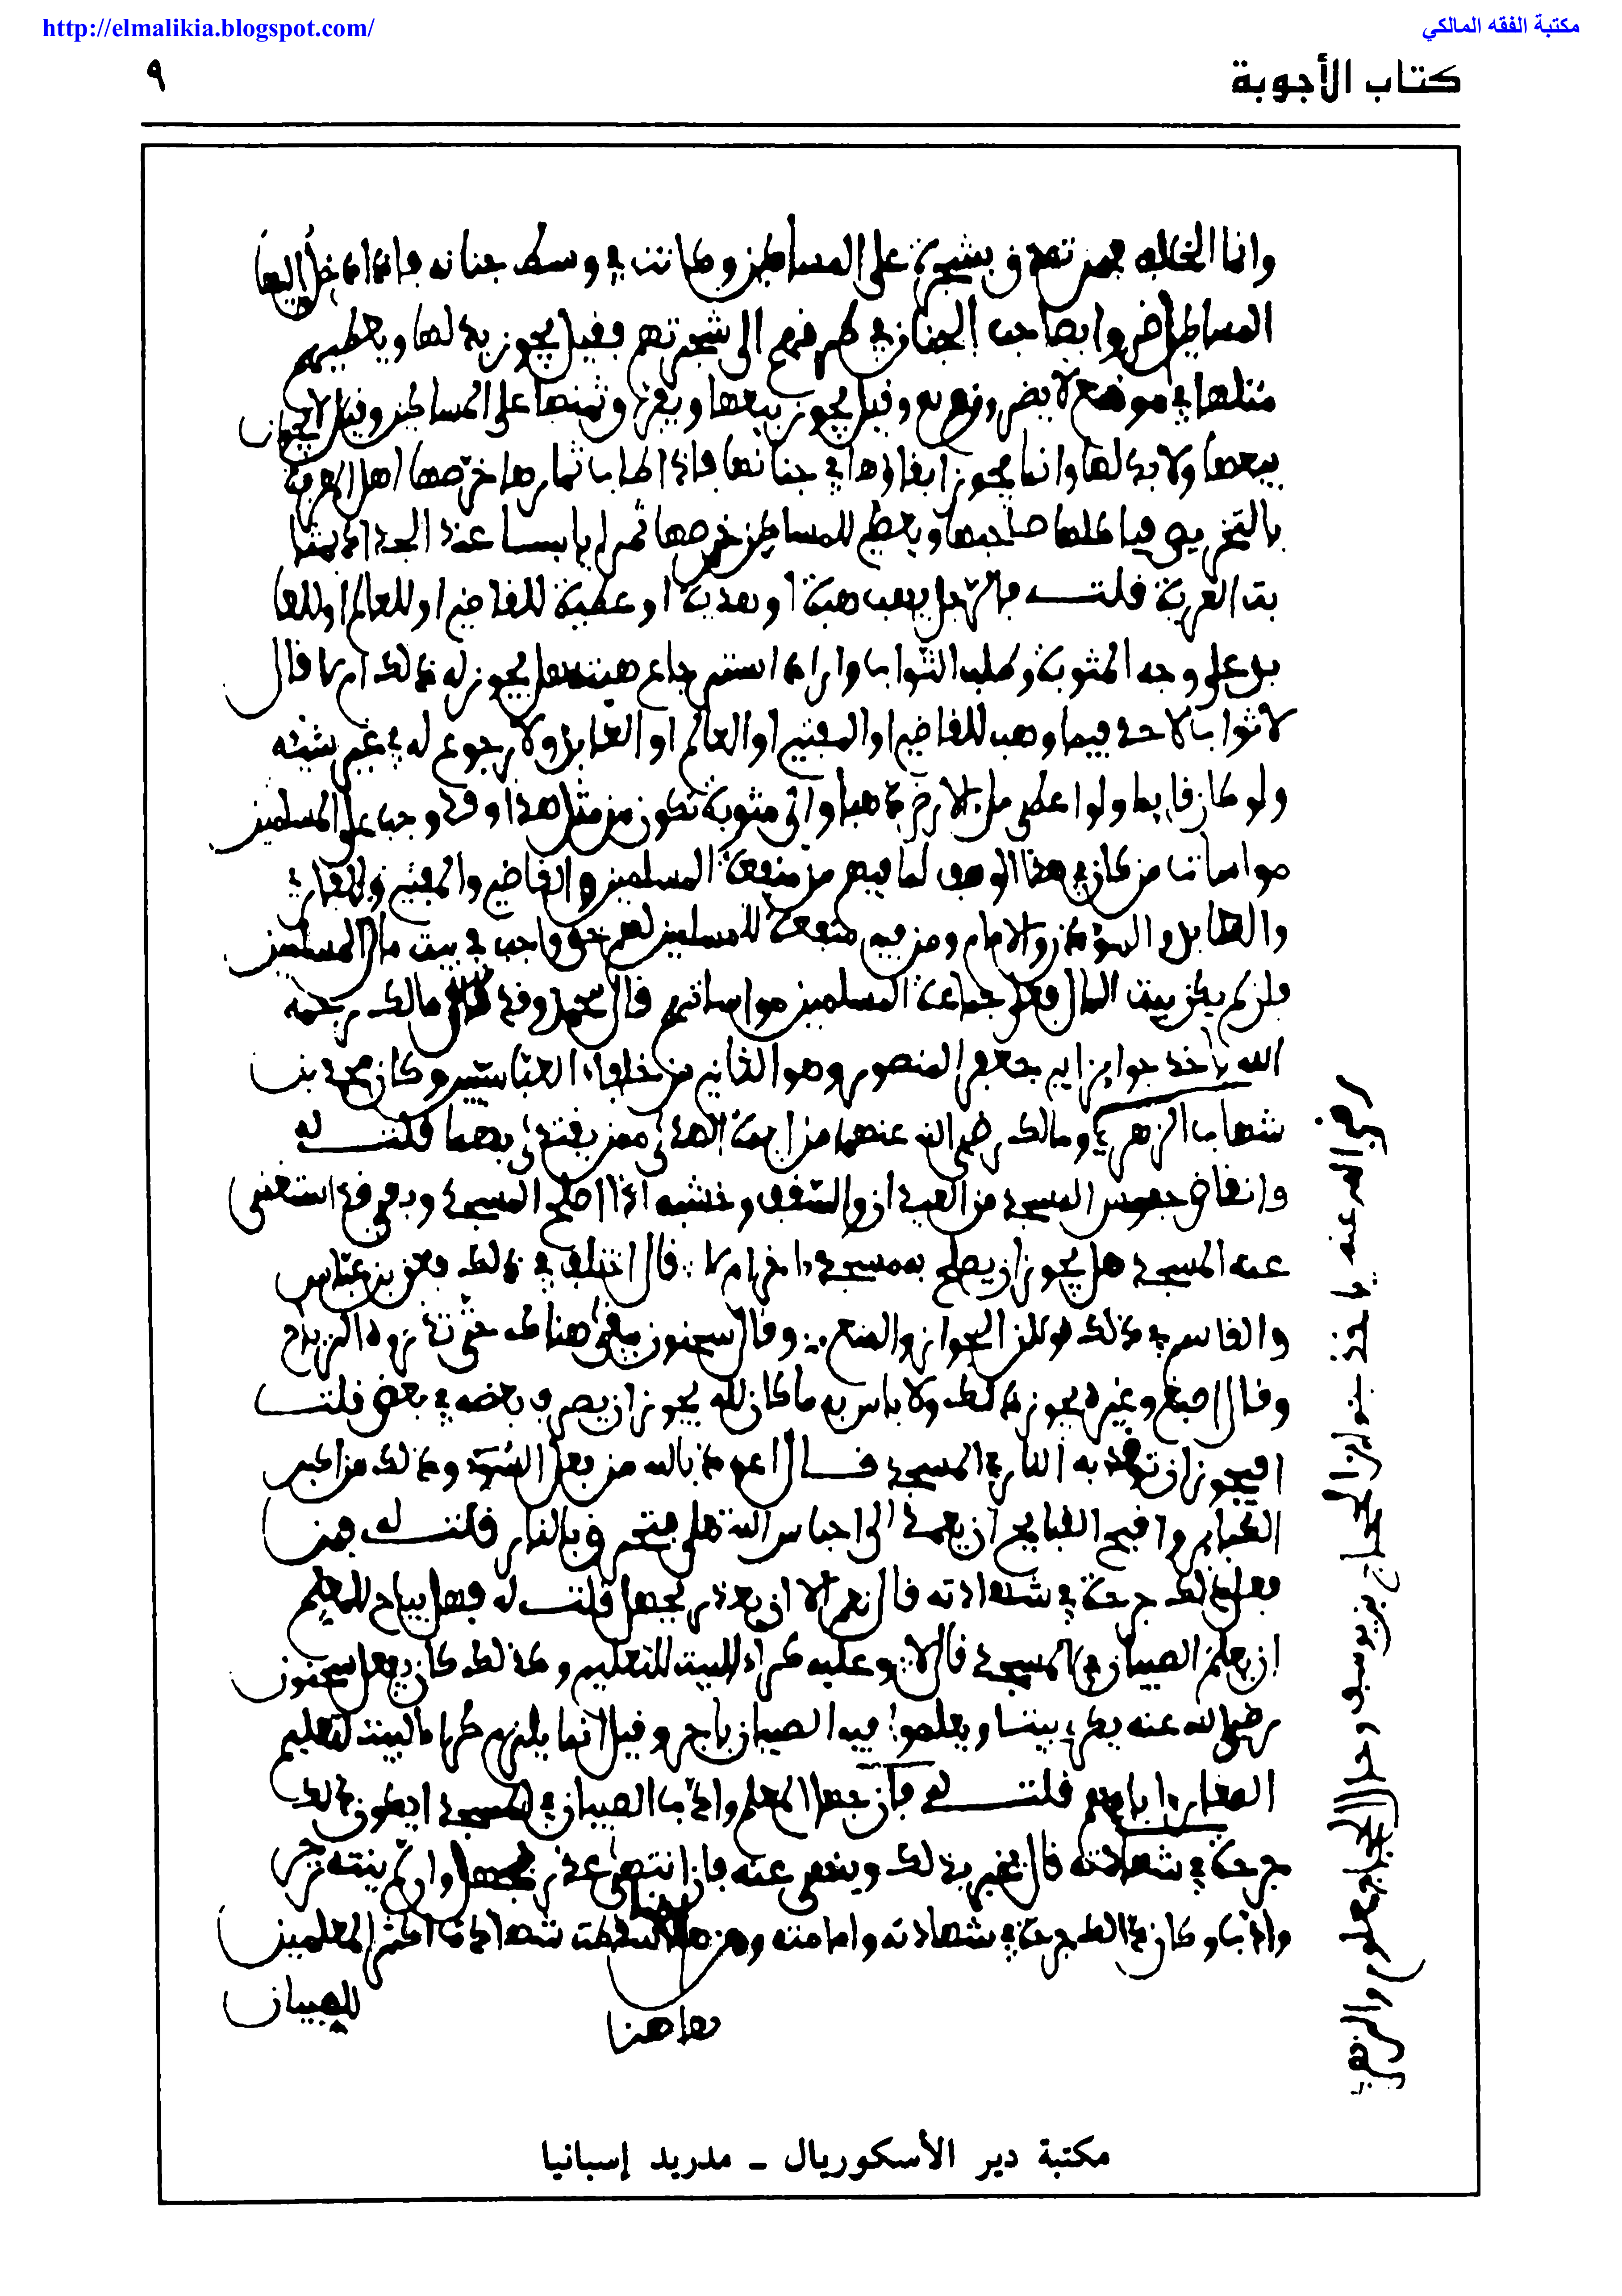 http://elmalikia.blogspot.com/
مكتبة الفقه المالكي
كتاب الأجوبة
٩
وانما الخلاف فيمن تصدق بشجرة على المساكين وكانت في وسط جنانه فاذا دخل اليها
المساكين اضروا بصاحب الجنان في طرفهم الى شجرتهم فقيل يجوز بدلها ويعطيهم
مثلها في موضع لا يضرونه به وقيل يجوز بيعها ويفرق ثمنها على المساكين وقيل لا يجوز
بيعها ولا بدلها وانما يجوز ابقاؤها في جنانها فاذا طاب ثمارها خرصها اهل المعرفة
بالتخريص فياكلها صاحبها ويعطي للمساكين خرصها تمرا يابسا عند الجداد مثل
بيع العرية قلت فالرجل يهب هبة او هدية او عطية للقاضي او للعالم او للعا
بد على وجه المثوبة وطلب الثواب واراد استرجاع هبته هل يجوز له ذلك ام لا قال
لا ثواب لاحد فيما وهب للقاضي او المفتي او العالم او العابد ولا رجوع له في غير شيئه
ولو كان قايما ولو اعطى ملء الارض ذهبا واي مثوبة تكون من مثل هذا وقد وجب على المسلمين
مواسات من كان في هذا الوصف لما فيهم من منفعة المسلمين والقاضي والمفتي والقارئ
والعابد والمؤذن والامام ومن فيه منفعة للمسلمين لهم حق واجب في بيت مال المسلمين
فان لم يكن بيت المال فعلى جماعة المسلمين مواساتهم قال محمد وقد كان مالك رحمه
الله يأخذ جوايز ابي جعفر المنصور وهو الثاني من خلفاء العباسيين وكان محمد بن
شهاب الزهري ومالك رضي الله عنهما من ايمة الهدى ممن يقتدى بهما قلت له
وانقاض حبس المسجد من العيدان والسقف وخشبه اذا اصلح المسجد وبقي وقد استغنى
عنه المسجد هل يجوز ان يصلح به مسجد اخر ام لا قال اختلف في ذلك فعن بن عباس
والقاسم في ذلك قولان الجواز والمنع وقال سحنون يبقى هناك حتى تذروه الرياح
وقال اصبغ وغيره يجوز ذلك ولا باس به ما كان لله يجوز ان يصرف بعضه في بعض قلت
افيجوز ان توقد به النار في المسجد قال اعوذ بالله من فعل السوء وذلك من اكبر
الكباير واقبح القبايح ان يعمد الى احباس الله تعلى فتحرق بالنار قلت له فمن
فعل ذلك جرحة في شهادته قال نعم الا ان يعذر بجهل قلت له فهل يباح للمعلم
ان يعلم الصبيان في المسجد قال لا وعليه كراء البيت للتعليم وكذلك كان يفعل سحنون
رضي الله عنه يكري بيتا ويعلموا فيه الصبيان باجر وقيل انما يلزم كراء البيت لتعليم
الصغار اباءهم قلت له فان جهل المعلم وادب الصبيان في المسجد ايكون ذلك
جرحة في شهادته قال يخبر بذلك وينهى عنه فان انتهى عذر بجهل وان لم ينته زجر
وادب وكان ذلك جرحة في شهادته وامامته ومن هاهنا سقطت شهادة اكثر المعلمين
للصبيان
هاهنا
رضي الله عنه ياخذ جوايز الحجاج بن يوسف وحال الحجاج معلوم والزهري
مكتبة دير الأسكوريال - مدريد إسبانيا